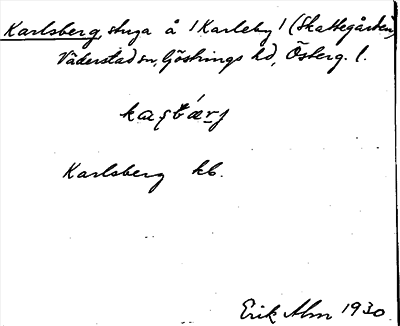 Karlsberg, stuga å /Karleby/ (Skattegården)
Väderstad sn, Göstrings hd, Österg. l.
Karlsberg kb.
Erik Alm 1930